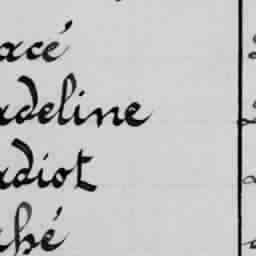 acé
adeline
adiot
ché